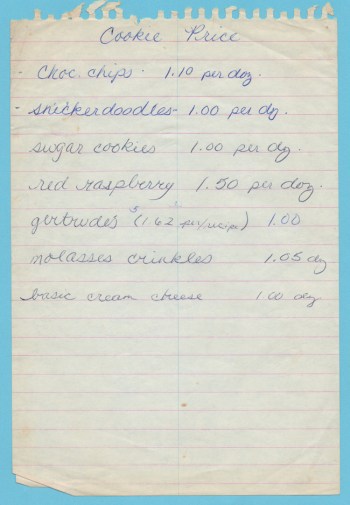 Cookie Price
- Choc. chips - 1.10 per doz.
- Snickerdoodles - 1.00 per dz.
sugar cookies 1.00 per dz.
red raspberry 1.50 per doz.
gertrudes (1 62 per/recipe) 1.00
molasses crinkles 1.05 dz
basic cream cheese 1.00 dz